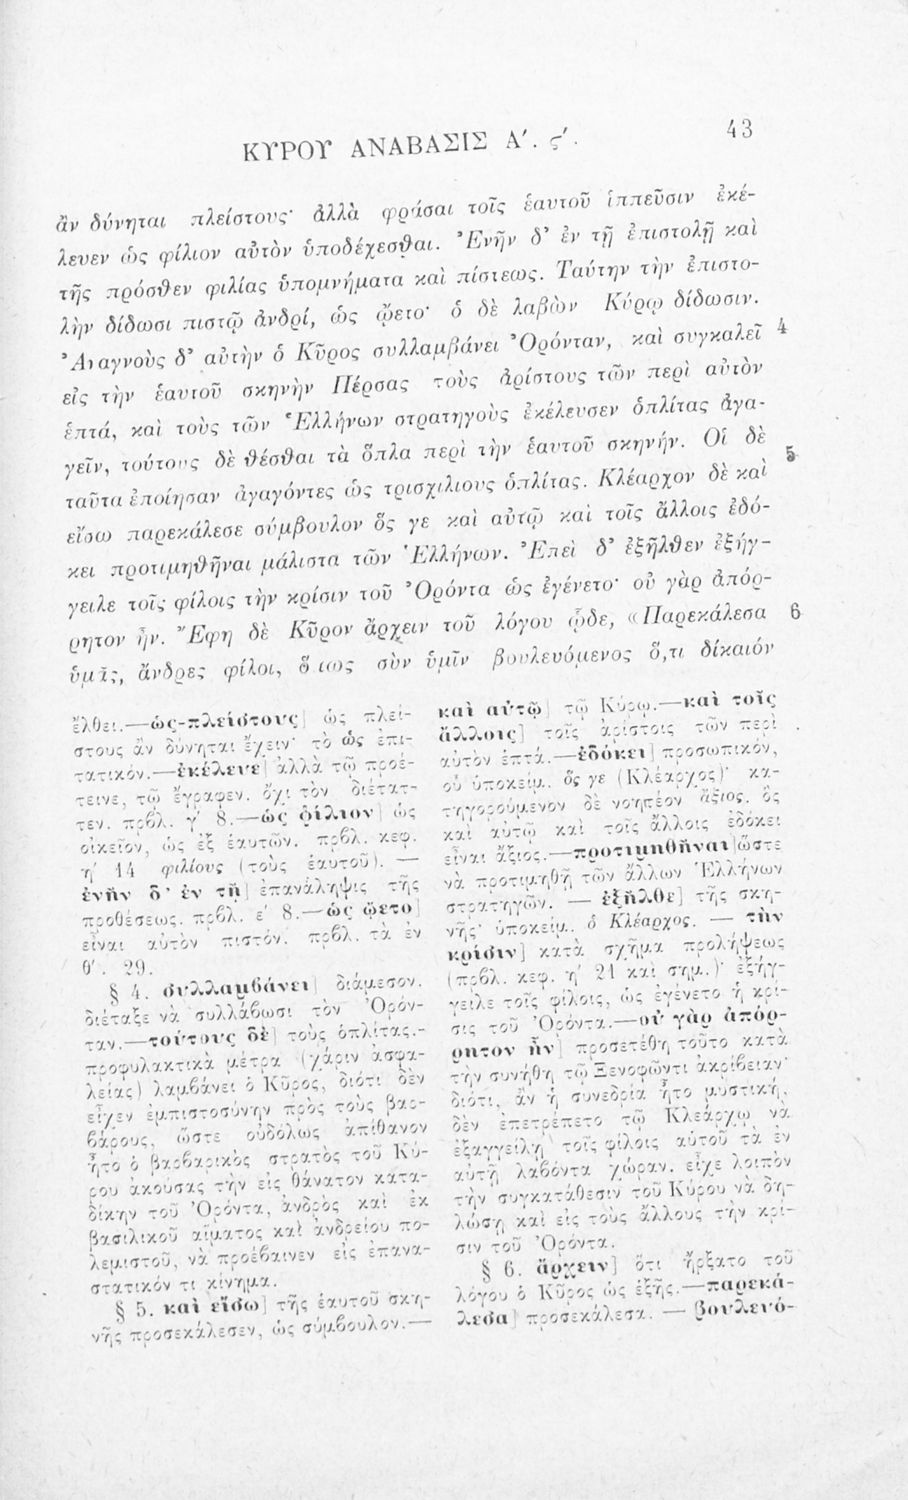 ΚΥΡΟΥ ΑΝΑΒΑΣΙΣ Α΄. ς΄.
43
ἂν δύνηται πλείστους· ἀλλὰ φράσαι τοῖς ἑαυτοῦ ἱππεῦσιν ἐκέ-
λευεν ὡς φίλιον αὐτὸν ὑποδέχεσθαι. Ἐνῆν δ’ ἐν τῇ ἐπιστολῇ καὶ
τῆς πρόσθεν φιλίας ὑπομνήματα καὶ πίστεως. Ταύτην τὴν ἐπιστο-
λὴν δίδωσι πιστῷ ἀνδρί, ὡς ᾤετο· ὁ δὲ λαβὼν Κύρῳ δίδωσιν.
Ἀναγνοὺς δ’ αὐτὴν ὁ Κῦρος συλλαμβάνει Ὀρόνταν, καὶ συγκαλεῖ 4
εἰς τὴν ἑαυτοῦ σκηνὴν Πέρσας τοὺς ἀρίστους τῶν περὶ αὐτὸν
ἑπτά, καὶ τοὺς τῶν Ἑλλήνων στρατηγοὺς ἐκέλευσεν ὁπλίτας ἀγα-
γεῖν, τούτους δὲ θέσθαι τὰ ὅπλα περὶ τὴν ἑαυτοῦ σκηνήν. Οἱ δὲ 5
ταῦτα ἐποίησαν ἀγαγόντες ὡς τρισχιλίους ὁπλίτας. Κλέαρχον δὲ καὶ
εἴσω παρεκάλεσε σύμβουλον ὅς γε καὶ αὐτῷ καὶ τοῖς ἄλλοις ἐδό-
κει προτιμηθῆναι μάλιστα τῶν Ἑλλήνων. Ἐπεὶ δ’ ἐξῆλθεν ἐξήγ-
γειλε τοῖς φίλοις τὴν κρίσιν τοῦ Ὀρόντα ὡς ἐγένετο· οὐ γὰρ ἀπόρ-
ρητον ἦν. Ἔφη δὲ Κῦρον ἄρχειν τοῦ λόγου ὧδε, «Παρεκάλεσα 6
ὑμᾶς, ἄνδρες φίλοι, ὅπως σὺν ὑμῖν βουλευόμενος ὅ,τι δίκαιόν
ἔλθει.—ὡς-πλείστους] ὡς πλεί-
στους ἂν δύνηται ἔχειν· τὸ ὡς ἐπι-
τατικόν.—ἐκέλευε] ἀλλὰ τῷ προέ-
τεινε, τῷ ἔγραφεν. ὄχι τὸν διέτατ-
τεν. πρβλ. γ΄ 8.—ὡς φίλιον] ὡς
οἰκεῖον, ὡς ἐξ ἑαυτῶν. πρβλ. κεφ.
η΄ 14 φιλίους (τοὺς ἑαυτοῦ). —
ἐνῆν δ’ ἐν τῇ] ἐπανάληψις τῆς
προθέσεως. πρβλ. ε΄ 8.—ὡς ᾤετο]
εἶναι αὐτὸν πιστόν. πρβλ. τὰ ἐν
θ΄. 29.
§ 4. συλλαμβάνει] διάμεσον.
διέταξε νὰ συλλάβωσι τὸν Ὀρόν-
ταν.—τούτους δὲ] τοὺς ὁπλίτας.-
προφυλακτικὰ μέτρα (χάριν ἀσφα-
λείας) λαμβάνει ὁ Κῦρος, διότι δὲν
εἶχεν ἐμπιστοσύνην πρὸς τοὺς βαρ-
βάρους, ὥστε οὐδόλως ἀπίθανον
ἦτο ὁ βαρβαρικὸς στρατὸς τοῦ Κύ-
ρου ἀκούσας τὴν εἰς θάνατον κατα-
δίκην τοῦ Ὀρόντα, ἀνδρὸς καὶ ἐκ
βασιλικοῦ αἵματος καὶ ἀνδρείου πο-
λεμιστοῦ, νὰ προέβαινεν εἰς ἐπανα-
στατικόν τι κίνημα.
§ 5. καὶ εἴσω] τῆς ἑαυτοῦ σκη-
νῆς προσεκάλεσεν, ὡς σύμβουλον.—
καὶ αὐτῷ] τῷ Κύρῳ.—καὶ τοῖς
ἄλλοις] τοῖς ἀρίστοις τῶν περὶ
αὐτὸν ἑπτά.—ἐδόκει] προσωπικόν,
οὗ ὑποκείμ. ὅς γε (Κλέαρχος)· κα-
τηγορούμενον δὲ νοητέον ἄξιος. ὃς
καὶ αὐτῷ καὶ τοῖς ἄλλοις ἐδόκει
εἶναι ἄξιος.—προτιμηθῆναι] ὥστε
νὰ προτιμηθῇ τῶν ἄλλων Ἑλλήνων
στρατηγῶν. — ἐξῆλθε] τῆς σκη-
νῆς· ὑποκείμ. ὁ Κλέαρχος. — τὴν
κρίσιν] κατὰ σχῆμα προλήψεως
(πρβλ. κεφ. η΄ 21 καὶ σημ.)· ἐξήγ-
γειλε τοῖς φίλοις, ὡς ἐγένετο ἡ κρί-
σις τοῦ Ὀρόντα.—οὐ γὰρ ἀπόρ-
ρητον ἦν] προσετέθη τοῦτο κατὰ
τὴν συνήθη τῷ Ξενοφῶντι ἀκρίβειαν·
διότι, ἂν ἡ συνεδρία ἦτο μυστική,
δὲν ἐπετρέπετο τῷ Κλεάρχῳ νὰ
ἐξαγγείλῃ τοῖς φίλοις αὐτοῦ τὰ ἐν
αὐτῇ λαβόντα χώραν. εἶχε λοιπὸν
τὴν συγκατάθεσιν τοῦ Κύρου νὰ δη-
λώσῃ καὶ εἰς τοὺς ἄλλους τὴν κρί-
σιν τοῦ Ὀρόντα.
§ 6. ἄρχειν] ὅτι ἤρξατο τοῦ
λόγου ὁ Κῦρος ὡς ἑξῆς.—παρεκά-
λεσα] προσεκάλεσα. — βουλευό-